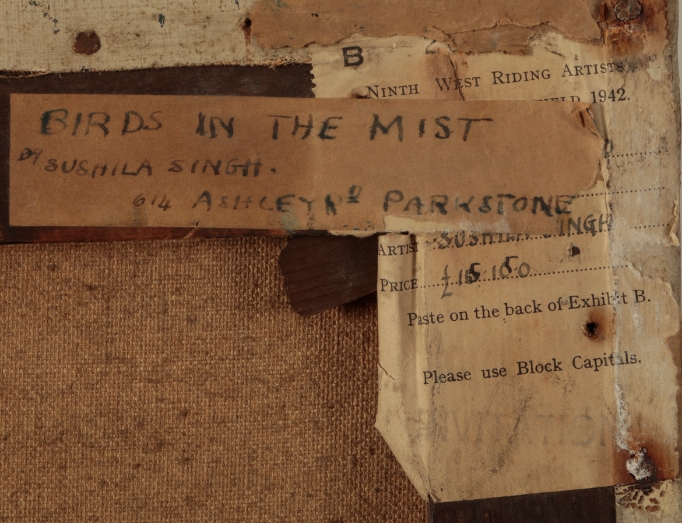 B
NINTH WEST RIDING ARTISTS
1942.
BIRDS IN THE MIST
BY SUSHILA SINGH.
614 ASHLEY RD PARKSTONE
ARTIST SUSHILA SINGH
PRICE £15.15.0
Paste on the back of Exhibit B.
Please use Block Capitals.